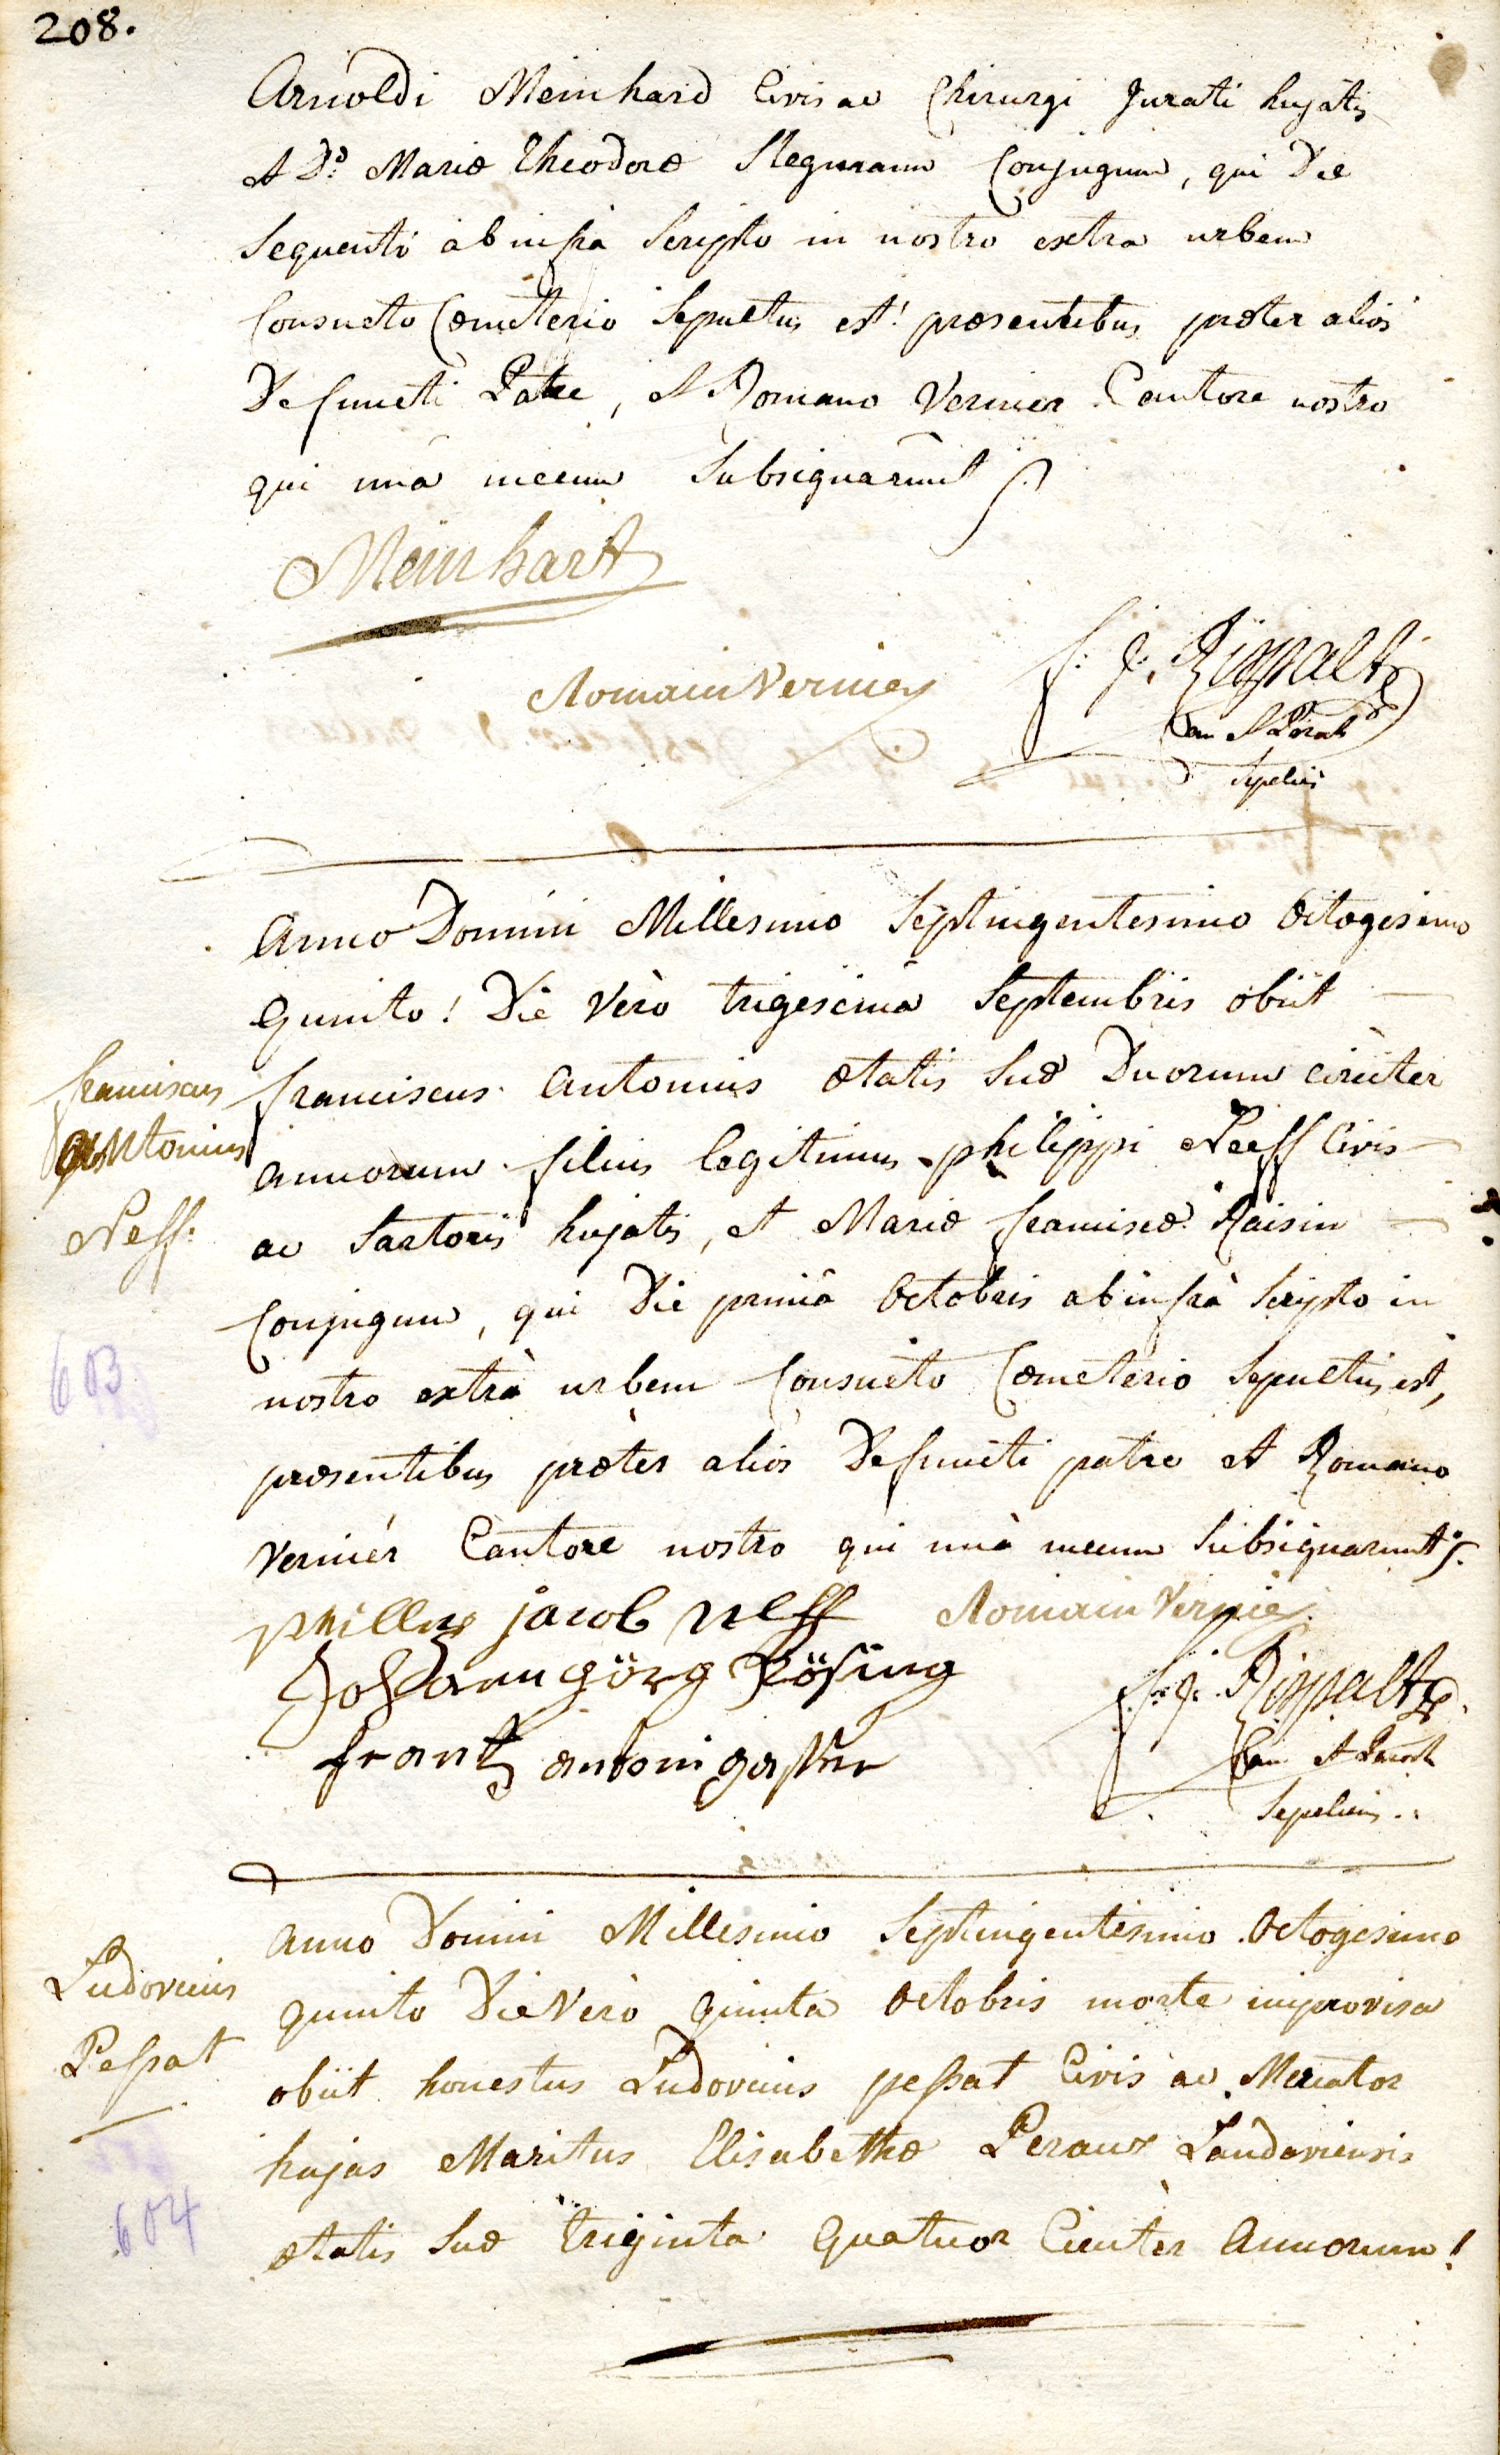 208.
Arnoldi Meinhard Civis ac Chirurgi Jurati hujatis
et Dæ Mariæ Theodoræ Conjugum, qui Die
sequenti ab infrà scripto in nostro extra urbem
Consueto Cœmeterio sepultus est! præsentibus præter alios
Defuncti Patre, et Romano Vernier Cantore nostro
qui unà mecum subsignarunt
Meinhart
Romain Vernier
f: J. Rippalt
Can
sepelivi
Anno Domini Millesimo Septingentesimo Octogesimo
Quinto! Die Verò trigesimâ Septembris obiit
franciscus Antonius ætatis suæ Duorum circiter
annorum filius legitimus philippi Neeff Civis
ac Sartoris hujatis, et Mariæ franciscæ Raisin
Conjugum, qui Die primâ Octobris ab infrà scripto in
nostro extrà urbem Consueto Cœmeterio sepultus est,
præsentibus præter alios Defuncti patre et Romano
Vernier Cantore nostro qui unà mecum subsignarunt
franciscus
Antonius
Neff:
603
jacob neff
Romain Vernier
Johann görg Rösing
frantz antoni
f: J. Rippalt
Can
Sepeliens
Anno Domini Millesimo Septingentesimo Octogesimo
quinto Die Verò Quinta Octobris morte improvisa
obiit honestus Ludovicus peßat Civis ac Mercator
hujas Maritus Elisabethæ Peraux Landaviensis
ætatis suæ triginta Quatuor Circiter Annorum!
Ludovicus
Peßat
604